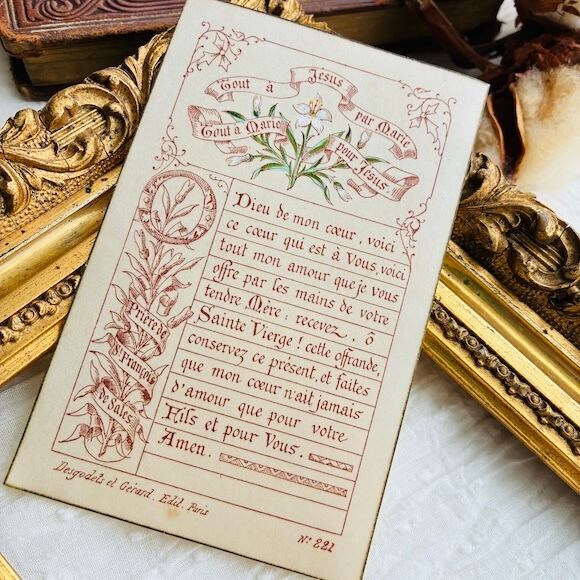 Tout à Jésus par Marie
Tout à Marie pour Jésus.
Dieu de mon cœur, voici
ce cœur qui est à Vous, voici
tout mon amour que je vous
offre par les mains de votre
tendre Mère : recevez, ô
Sainte Vierge ! cette offrande,
conservez ce présent, et faites
que mon cœur n'ait jamais
d'amour que pour votre
Fils et pour Vous.
Amen.
Prière de
St François
de Sales
Desgodets et Gérard. Edit. Paris
No. 221